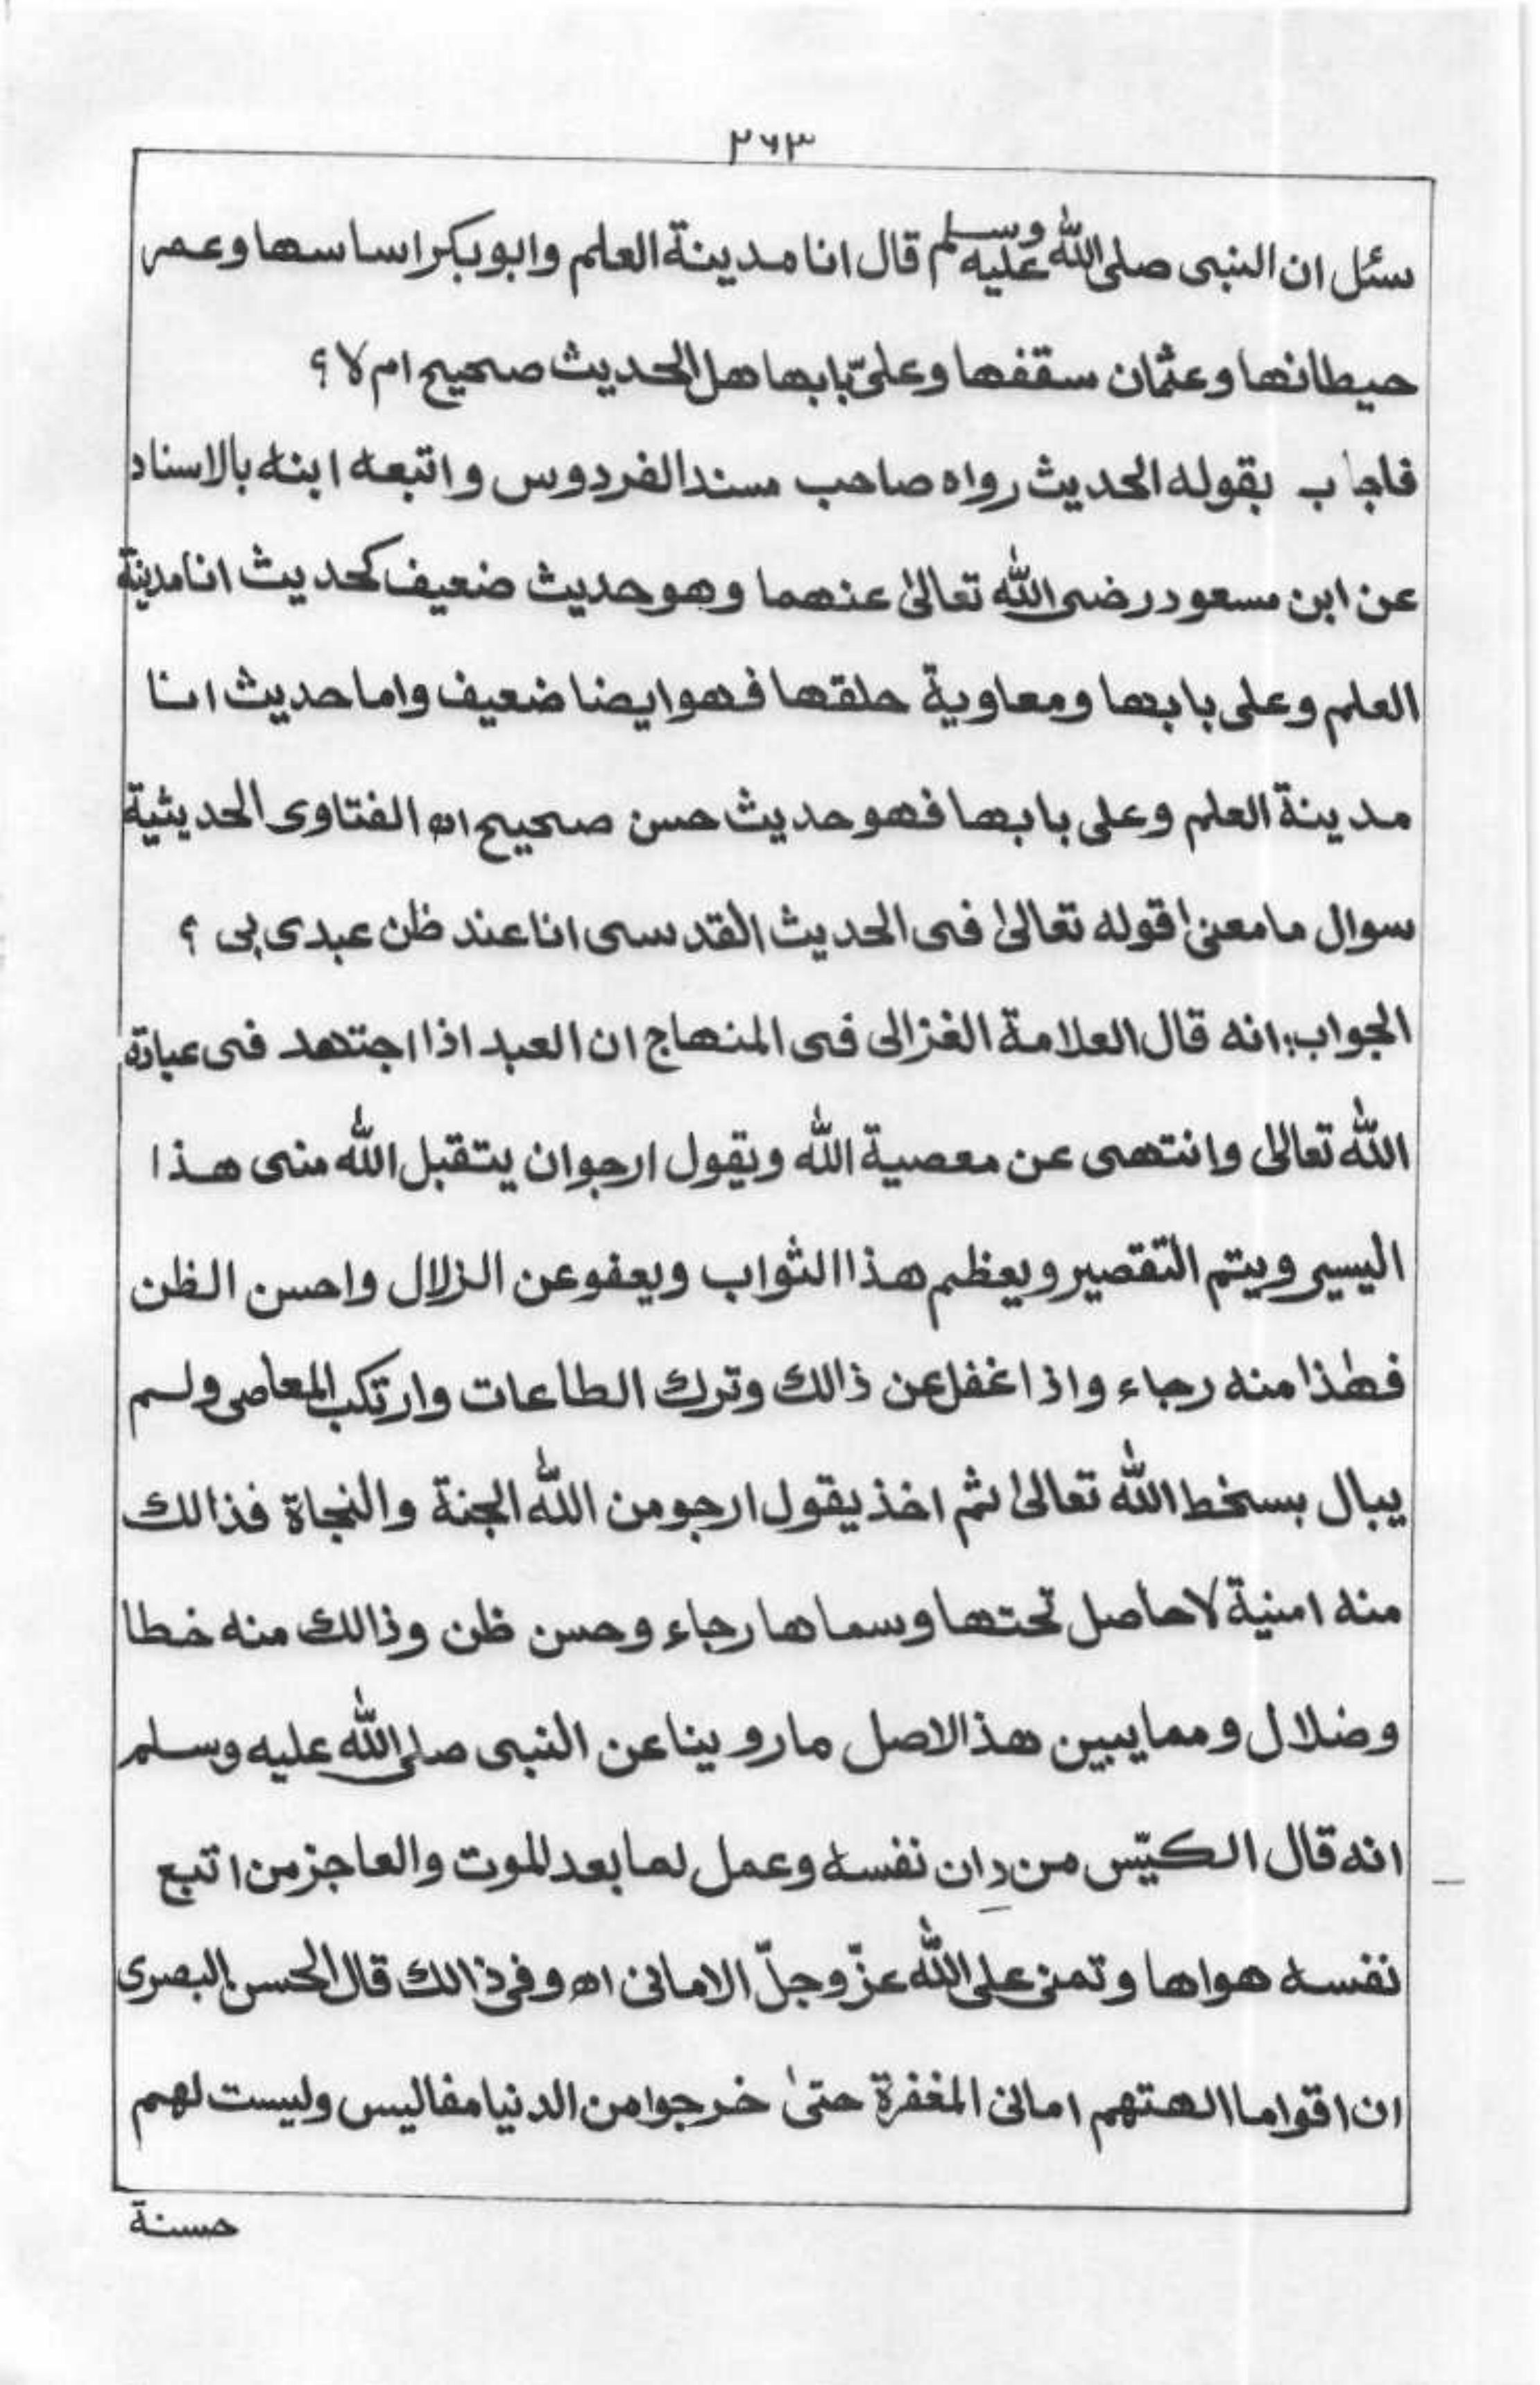 ٢٦٣
سئل ان النبى صلى الله عليه وسلم قال انا مدينة العلم وابوبكر اساسها وعمر
حيطانها وعثمان سقفها وعلىّ بابها هل الحديث صحيح ام لا ؟
فاجاب بقوله الحديث رواه صاحب مسند الفردوس واتبعه ابنه بالاسناد
عن ابن مسعود رضى الله تعالىٰ عنهما وهو حديث ضعيف كحديث انا مدينة
العلم وعلى بابها ومعاوية حلقها فهو ايضا ضعيف واما حديث انا
مدينة العلم وعلى بابها فهو حديث حسن صحيح اه الفتاوى الحديثية
سوال ما معنىٰ قوله تعالىٰ فى الحديث القدسى انا عند ظن عبدى بى ؟
الجواب: انه قال العلامة الغزالى فى المنهاج ان العبد اذا اجتهد فى عبادة
الله تعالىٰ وانتهى عن معصية الله ويقول ارجو ان يتقبل الله منى هذا
اليسير ويتم التقصير ويعظم هذا الثواب ويعفو عن الزلال واحسن الظن
فهٰذا منه رجاء واذا غفل عن ذالك وترك الطاعات وارتكب المعاصى ولم
يبال بسخط الله تعالىٰ ثم اخذ يقول ارجو من الله الجنة والنجاة فذالك
منه امنية لا حاصل تحتها وسماها رجاء وحسن ظن وذالك منه خطا
وضلال ومما يبين هذ الاصل ما روينا عن النبى صلى الله عليه وسلم
انه قال الكيّس من دان نفسه وعمل لما بعد الموت والعاجز من اتبع
نفسه هواها وتمنى على الله عزّ وجلّ الامانى اه وفى ذالك قال الحسن البصرى
ان اقواما الهتهم امانى المغفرة حتىٰ خرجوا من الدنيا مفاليس وليست لهم
حسنة